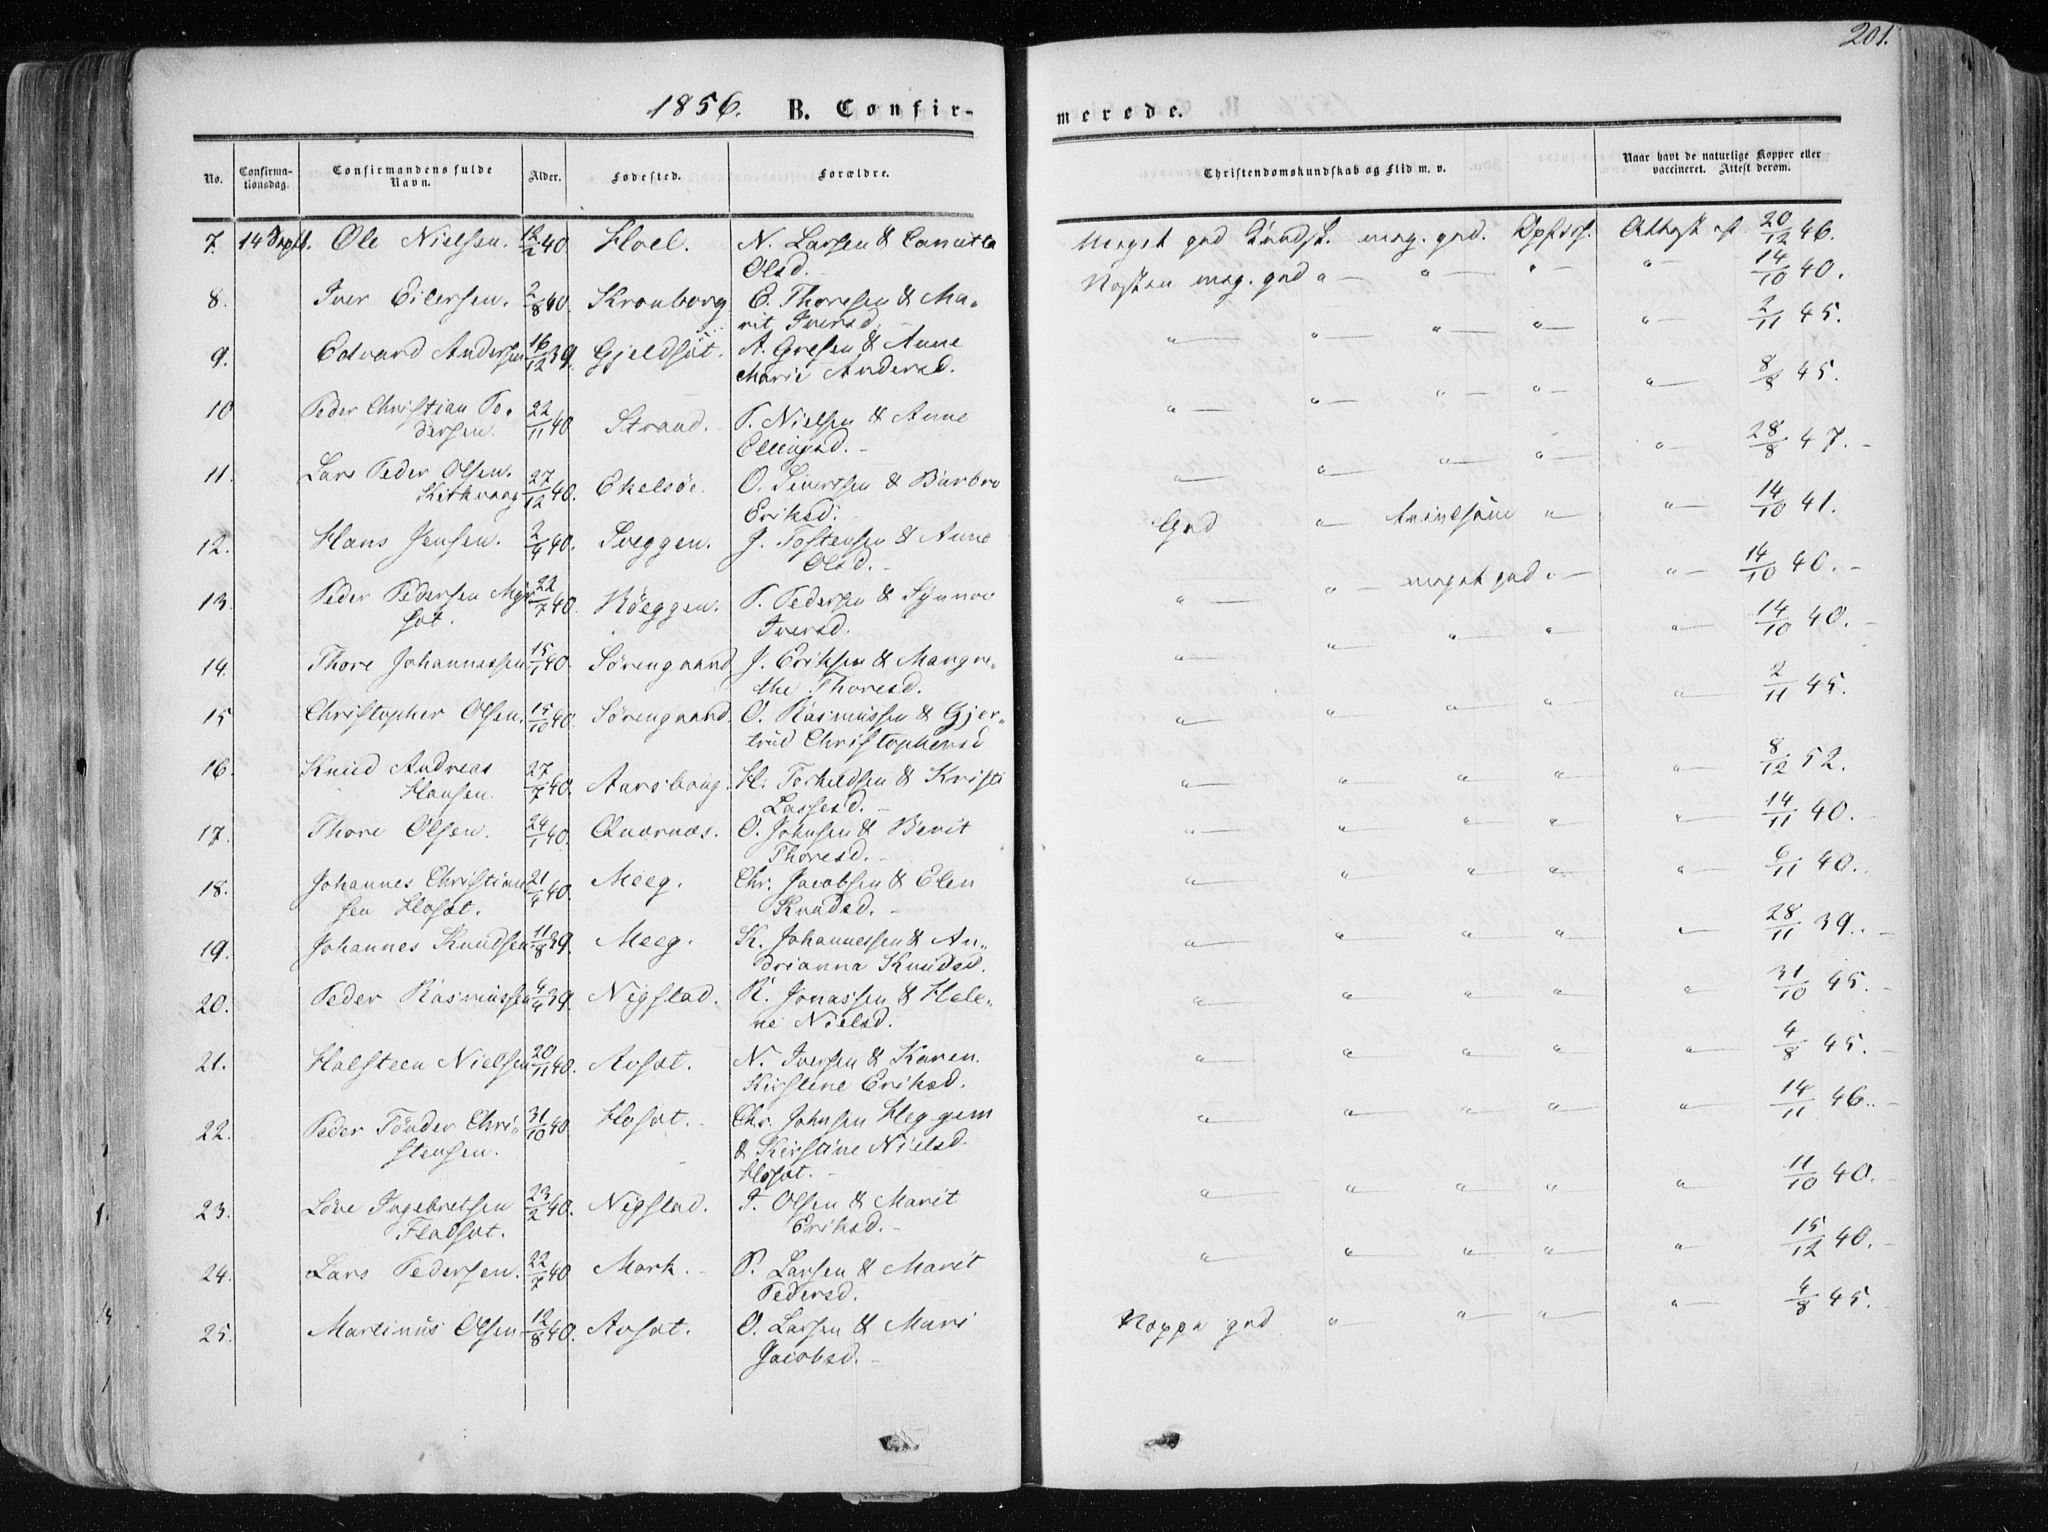 201.
1856. B. Confir-
merede.
No. Confirma-
tionsdag. Confirmandens fulde
Navn. Alder. Fødested. Forældre.
Christendomskundskab og Flid m. v. Naar havt de naturlige Kopper eller
vaccineret. Attest derom.
7. 14 Septb. Ole Nielsen. 12/2 40. Hoel. N. Larsen & 
Olsd. Meget god Kundsk. meg. god. Opførs. Attest af 20/12 46.
8. Iver Eilersen. 2/8 40. Kronborg E. Thoresen & Ma-
rit Iversd. Næsten meg. god " — " — " — " — 14/10 40.
9. Edvard Andersen 16/12 39. Gjeldsæt. A. Gresen & Anne
Marie Andersd. " — " — " — " — " — 2/11 45.
10 Peder Christian Pe-
dersen. 22/11 40 Strand. P. Nielsen & Anne
Ellingsd. " — " — " — " — " — 8/8 45.
11. Lars Peder Olsen.
27/12 40. Ekelsöe. O. Siverssen & Barbro
Eriksd. " — " — " — " — " — 28/8 47.
12. Hans Jensen. 2/4 40. Sveggen. J. Tostensen & Anne
Olsd. God " — " — " — 14/10 41.
13. Peder Pedersen Myr-
sæt. 22/7 40. Röeggen. P. Pedersen & Synnve
Iversd. " — " — meget god " — " — 14/10 40.
14. Thore Johannessen 15/1 40. Sörengaard J. Eriksen & Mangre-
the Thoresd. " — " — " — " — " — 14/10 40.
15 Christopher Olsen. 15/10 40. Sörengaard. O. Rasmussen & Gjer-
trud Christophersd " — " — " — " — " — 2/11 45.
16. Knud Andreas
Hansen. 27/7 40. Aarsboug. H. Torkildsen & Kristi
Lassesd. " — " — " — " — " — 8/12 52.
17. Thore Olsen. 24/1 40. Qvernæs. O. Johnsen & Berit
Thoresd. " — " — " — " — " — 14/11 40.
18. Johannes Christian
sen Hosæt. 21/4 40. Meeg. Chr. Jacobsen & Elen
Knudsd. " — " — " — " — " — 6/11 40.
19. Johannes Knudsen 11/8 39. Meeg. K. Johannessen & An-
drianna Knudsd. " — " — " — " — " — 28/11 39.
20. Peder Rasmussen 4/4 39. Nigstad. R. Jonassen & Hele-
ne Nielsd. " — " — " — " — " — 31/10 45.
21. Halsteen Nielsen 20/11 40. Avsæt. N. Iversen & Karen
Kirstine Eriksd. " — " — " — " — " — 4/8 45.
22. Peder Tönder Chri-
stensen. 31/10 40 Hosæt. Chr. Johnsen Heggem
& Kirstine Nielsd.
Hosæt. " — " — " — " — " — 14/11 46.
23. Löve Ingebretsen
Fladsæt. 23/2 40. Nigstad. I. Olsen & Marit
Eriksd. " — " — " — " — " — 11/10 40.
24. Lars Pedersen. 22/7 40 Mork. P. Larsen & Marit
Pedersd. " — " — " — " — " — 15/12 40.
25. Martinus Olsen 12/8 40. Avsæt. O. Larsen & Mari
Jacobsd. Neppe god " — " — " — " — 4/8 45.